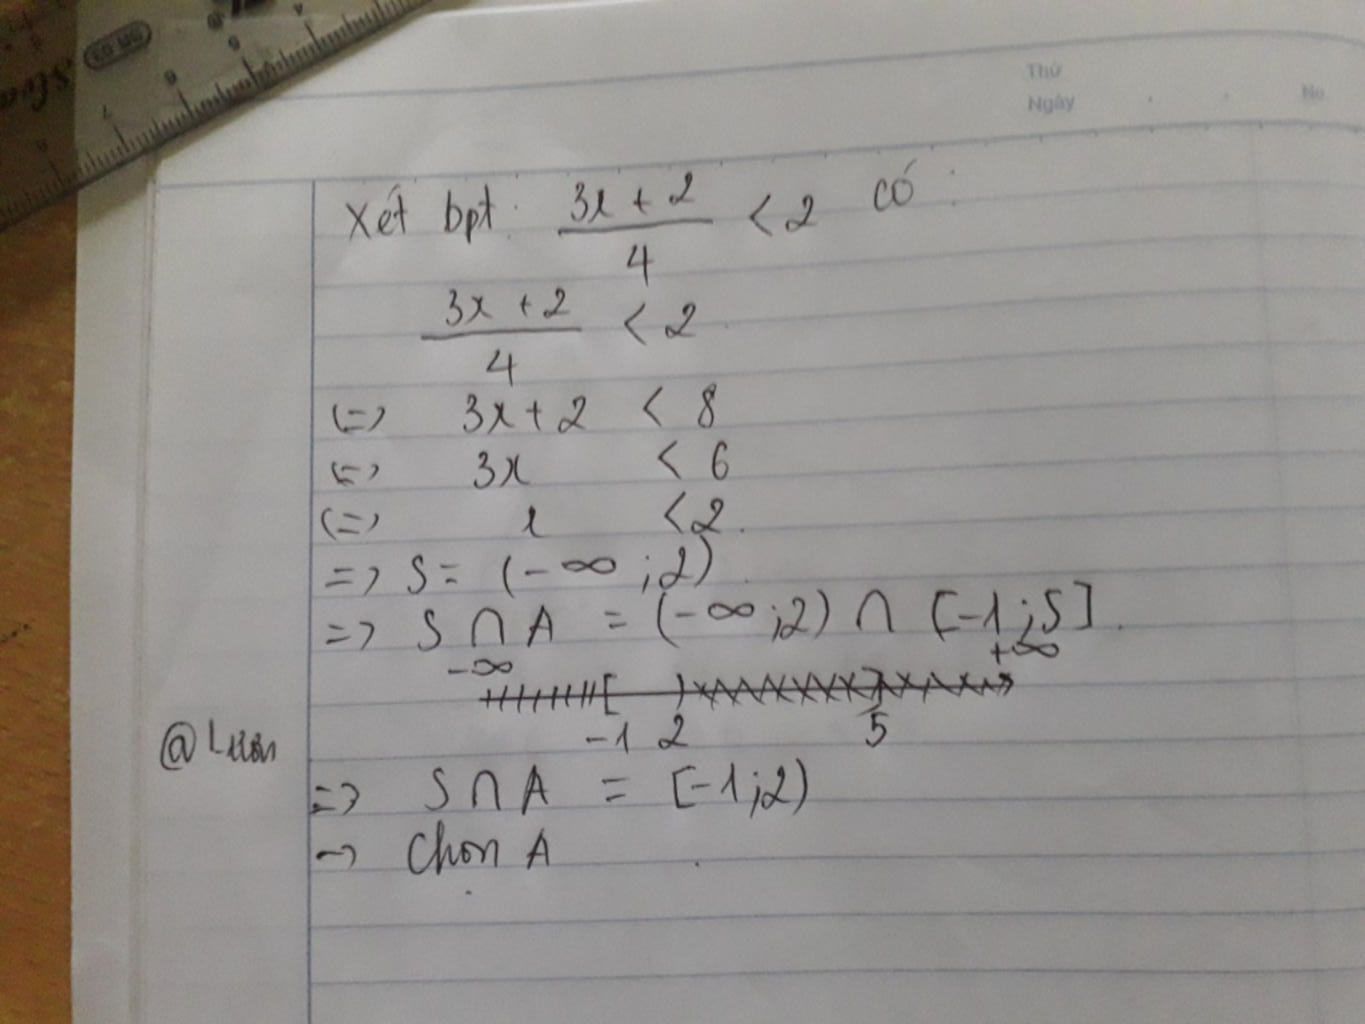 Thứ
Ngày . . No
Xét bpt: \frac{3x + 2}{4} < 2 có :
\frac{3x + 2}{4} < 2
<=> 3x + 2 < 8
<=> 3x < 6
<=> x < 2.
=> S = (-∞ ; 2)
=> S ∩ A = (-∞ ; 2) ∩ [-1 ; 5].
-∞ +∞
[ ) ]
-1 2 5
=> S ∩ A = [-1 ; 2)
-> Chọn A